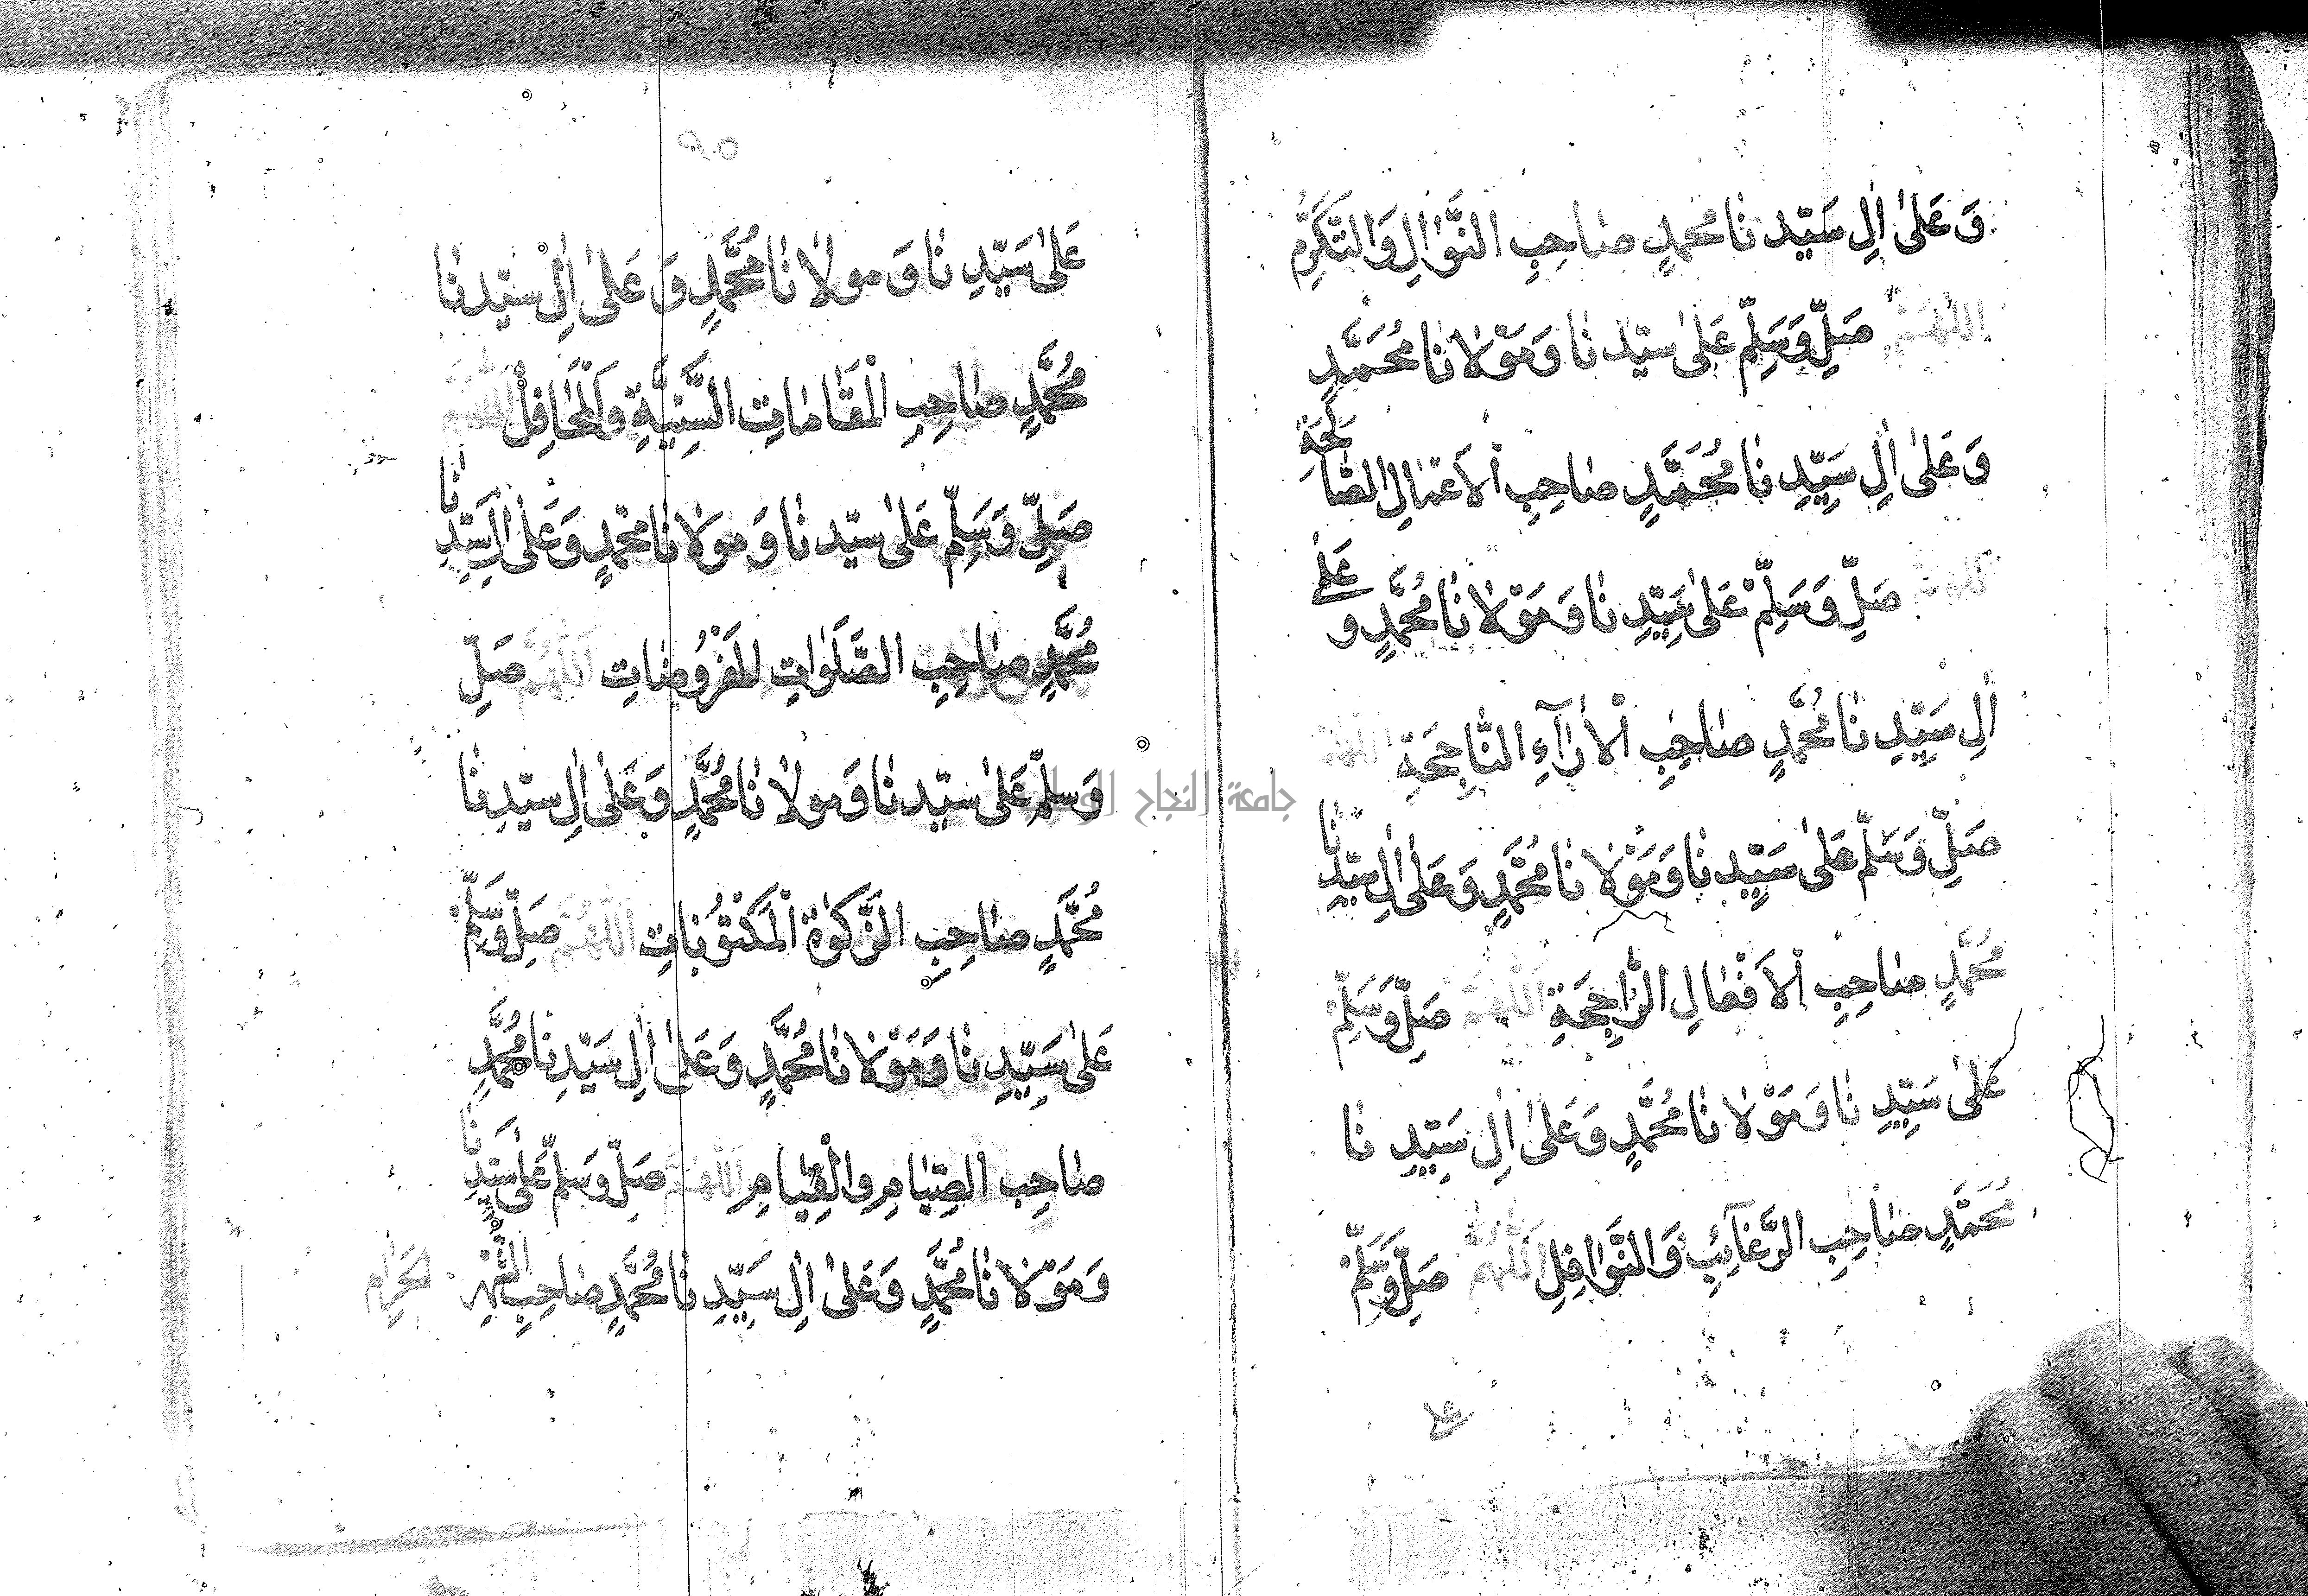 وَعَلىٰ اٰلِ سَيّدنَا محمدٍ صَاحِبِ النَّوَالِ وَالتَّكَرُّمِ
اللّٰهُمَّ صَلِّ وَسَلِّمْ عَلىٰ سيّدنَا وَمَوْلَانَا مُحَمَّدٍ
وَعَلىٰ اٰلِ سَيِّدِنَا مُحَمَّدٍ صَاحِبِ الْاَعْمَالِ الصَّالِحَةِ
اللّٰهُمَّ صَلِّ وَسَلِّمْ عَلىٰ سَيِّدِنَا وَمَوْلَانَا مُحَمَّدٍ وعَلىٰ
اٰلِ سَيِّدِنَا مُحَمَّدٍ صَاحِبِ الْاٰرَآءِ النَّاجِحَةِ اللّٰهُمَّ
صَلِّ وَسَلِّمْ عَلىٰ سَيِّدنَا وَمَوْلَانَا مُحَمَّدٍ وَعَلىٰ اٰلِ سَيّدِنَا
مُحَمَّدٍ صَاحِبِ الْاَفْعَالِ الرَّاجِحَةِ اَللّٰهُمَّ صَلِّ وَسَلِّمْ
عَلىٰ سَيِّدِنَا وَمَوْلَانَا مُحَمَّدٍ وَعَلىٰ اٰلِ سَيّدِنَا
مُحَمَّدٍ صَاحِبِ الرَّغَآئِبِ وَالنَّوَافِلِ اَللّٰهُمَّ صَلِّ وَسَلِّمْ
على
عَلىٰ سَيِّدِنَا وَمولَانَا مُحَمَّدٍ وَعَلىٰ اٰلِ سيّدنَا
مُحَمَّدٍ صَاحِبِ الْمَقَامَاتِ السَّنِيَّةِ وَالْمَحَافِلْ اَللّٰهُمَّ
صَلِّ وَسَلِّمْ عَلىٰ سيّدنَا وَمَوْلَانَا محمّدٍ وَعَلىٰ اٰلِ سَيِّدِنَا
مُحَمَّدٍ صَاحِبِ الصَّلَوَاتِ المَفْرُوضَاتِ اَللّٰهُمَّ صَلِّ
وَسلِّمْ عَلىٰ سيّدنَا وَمولَانَا مُحَمَّدٍ وَعَلىٰ اٰلِ سيّدِنَا
مُحَمَّدٍ صَاحِبِ الزَّكَوٰةِ الْمَكْتُوْبَاتِ اَللّٰهُمَّ صَلِّ وَسَلِّمْ
عَلىٰ سَيِّدِنَا وَمَوْلَانَا مُحَمَّدٍ وَعَلىٰ اٰلِ سَيّدِنَا مُحَمَّدٍ
صَاحِبِ الصِّيَامِ وَالْقِيَامِ اَللّٰهُمَّ صَلِّ وَسَلِّمْ عَلىٰ سَيّدِنَا
وَمَوْلَانَا مُحَمَّدٍ وَعَلىٰ اٰلِ سَيِّدِنَا مُحَمَّدٍ صَاحِبِ الشَّهْرِ الحَرَامِ
جامعة النجاح